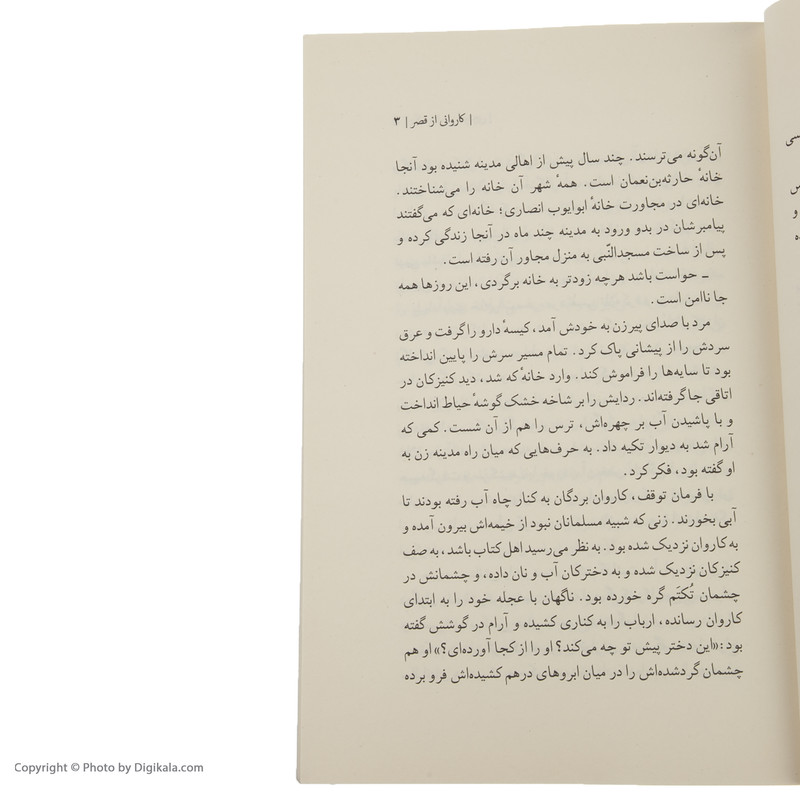 | کاروانی از قصر | ۳
آن‌گونه می‌ترسند. چند سال پیش از اهالی مدینه شنیده بود آنجا
خانهٔ حارثه‌بن‌نعمان است. همهٔ شهر آن خانه را می‌شناختند.
خانه‌ای در مجاورت خانهٔ ابوایوب انصاری؛ خانه‌ای که می‌گفتند
پیامبرشان در بدو ورود به مدینه چند ماه در آنجا زندگی کرده و
پس از ساخت مسجدالنّبی به منزل مجاور آن رفته است.
ـ حواست باشد هرچه زودتر به خانه برگردی، این روزها همه
جا ناامن است.
مرد با صدای پیرزن به خودش آمد، کیسهٔ دارو را گرفت و عرق
سردش را از پیشانی پاک کرد. تمام مسیر سرش را پایین انداخته
بود تا سایه‌ها را فراموش کند. وارد خانهٔ که شد، دید کنیزکان در
اتاقی جا گرفته‌اند. ردایش را بر شاخه خشک گوشهٔ حیاط انداخت
و با پاشیدن آب بر چهره‌اش، ترس را هم از آن شست. کمی که
آرام شد به دیوار تکیه داد. به حرف‌هایی که میان راه مدینه زن به
او گفته بود، فکر کرد.
با فرمان توقف، کاروان بردگان به کنار چاه آب رفته بودند تا
آبی بخورند. زنی که شبیه مسلمانان نبود از خیمه‌اش بیرون آمده و
به کاروان نزدیک شده بود. به نظر می‌رسید اهل کتاب باشد، به صف
کنیزکان نزدیک شده و به دخترکان آب و نان داده، و چشمانش در
چشمان تُکتَم گره خورده بود. ناگهان با عجله خود را به ابتدای
کاروان رسانده، ارباب را به کناری کشیده و آرام در گوشش گفته
بود: «این دختر پیش تو چه می‌کند؟ او را از کجا آورده‌ای؟» او هم
چشمان گردشده‌اش را در میان ابروهای درهم کشیده‌اش فرو برده
Copyright © Photo by Digikala.com